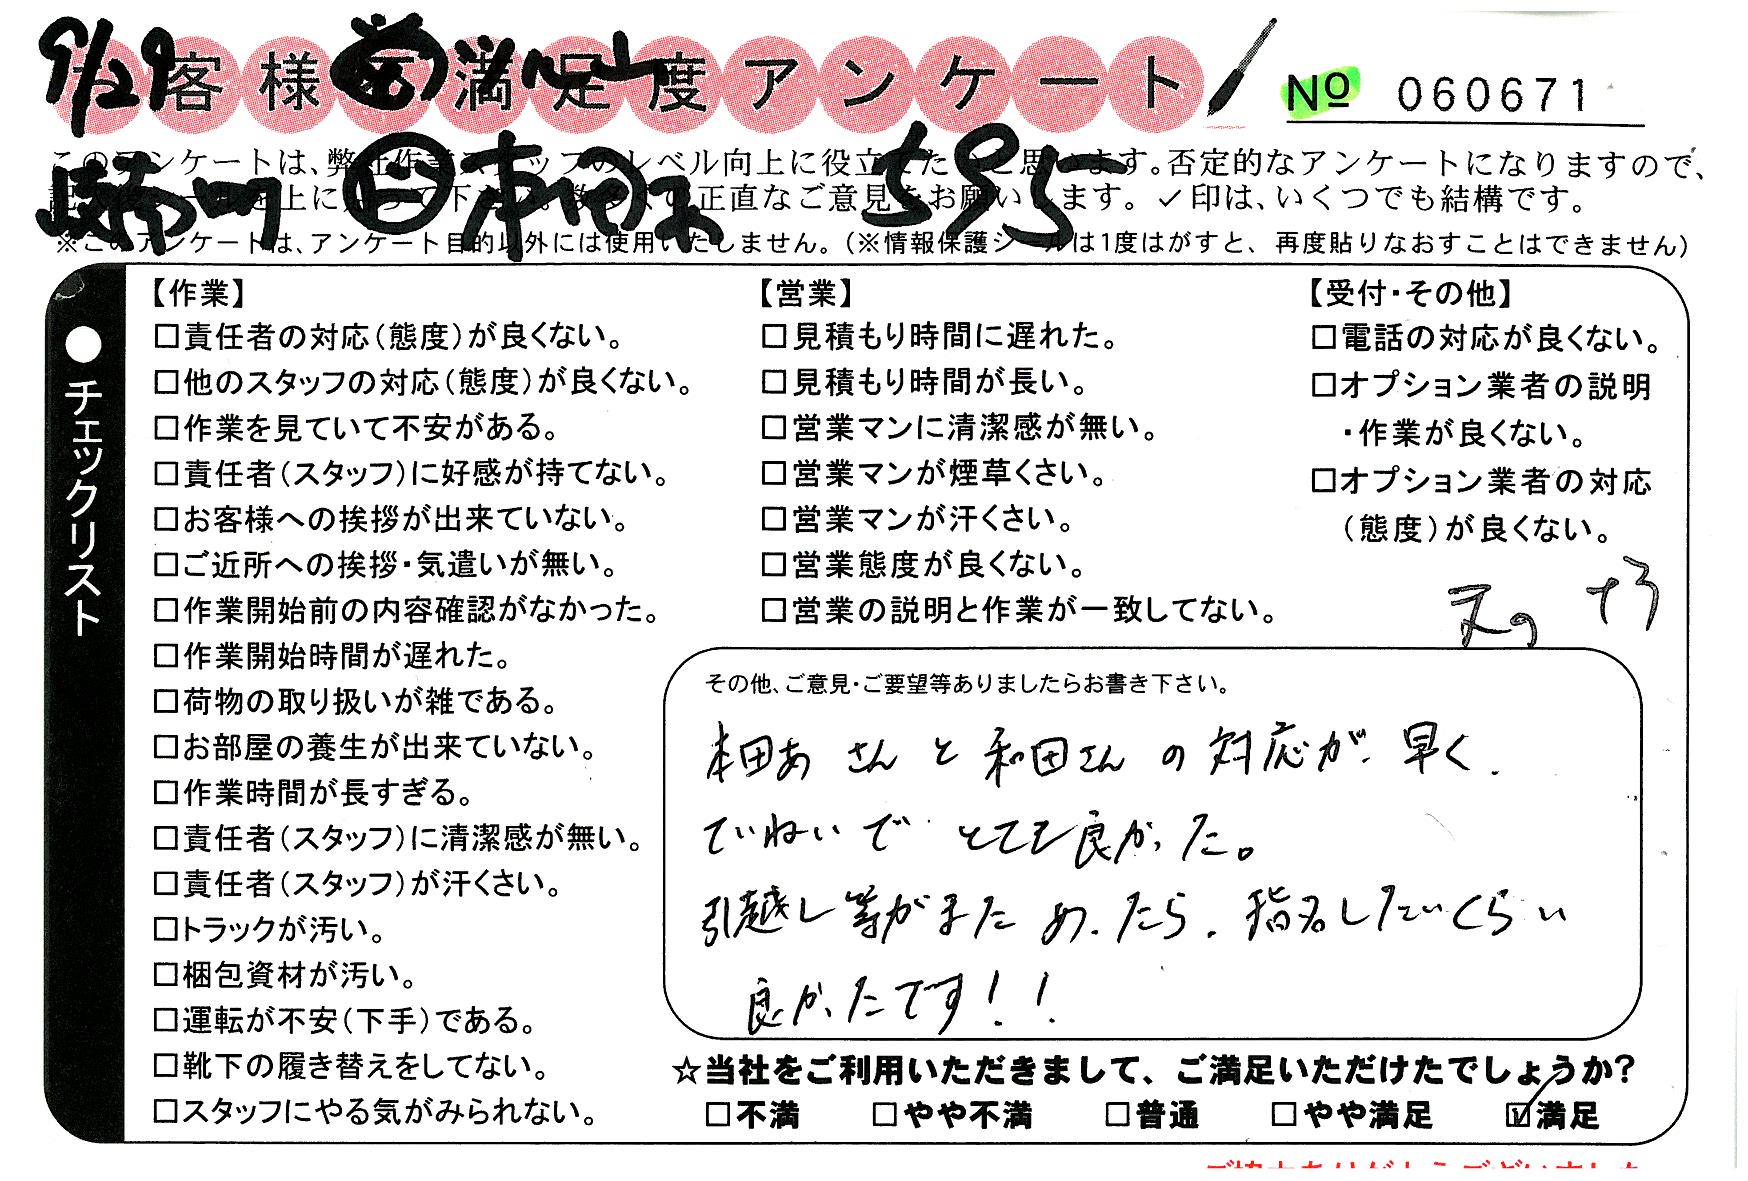 9/29
お客様不満足度アンケート
No 060671
このアンケートは、弊社作業スタッフのレベル向上に役立てたいと思います。否定的なアンケートになりますので、
記入後シールを上に貼って下さい。数多くの正直なご意見をお願いします。✓印は、いくつでも結構です。
※このアンケートは、アンケート目的以外には使用いたしません。(※情報保護シールは1度はがすと、再度貼りなおすことはできません)
●チェックリスト
【作業】
□責任者の対応(態度)が良くない。
□他のスタッフの対応(態度)が良くない。
□作業を見ていて不安がある。
□責任者(スタッフ)に好感が持てない。
□お客様への挨拶が出来ていない。
□ご近所への挨拶・気遣いが無い。
□作業開始前の内容確認がなかった。
□作業開始時間が遅れた。
□荷物の取り扱いが雑である。
□お部屋の養生が出来ていない。
□作業時間が長すぎる。
□責任者(スタッフ)に清潔感が無い。
□責任者(スタッフ)が汗くさい。
□トラックが汚い。
□梱包資材が汚い。
□運転が不安(下手)である。
□靴下の履き替えをしてない。
□スタッフにやる気がみられない。
【営業】
□見積もり時間に遅れた。
□見積もり時間が長い。
□営業マンに清潔感が無い。
□営業マンが煙草くさい。
□営業マンが汗くさい。
□営業態度が良くない。
□営業の説明と作業が一致してない。
【受付・その他】
□電話の対応が良くない。
□オプション業者の説明
・作業が良くない。
□オプション業者の対応
(態度)が良くない。
その他、ご意見・ご要望等ありましたらお書き下さい。
本田あさんと和田さんの対応が早く、
ていねいでとても良かった。
引越し等がまたあったら、指名したいくらい
良かったです!!
☆当社をご利用いただきまして、ご満足いただけたでしょうか?
□不満 □やや不満 □普通 □やや満足 ☑満足